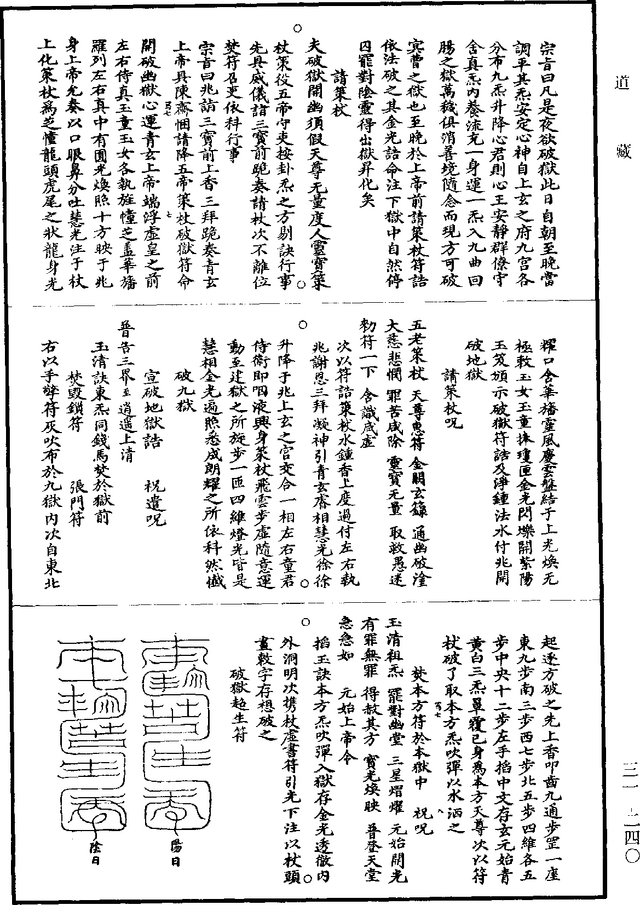 道藏
宗旨曰凡是夜欲破獄此日自朝至晚當
調平其炁安定心神自上玄之府九宮各
分布九炁升降心君則心王安靜群僚守
舍真炁內養流充一身運一炁入九曲回
腸之獄萬穢俱消善境隨念而現方可破
冥曹之獄也至晚於上帝前請策杖符誥
依法破之其金光誥命注下獄中自然停
囚罷對陰靈得出獄昇化矣
請策杖
夫破獄開幽須假天尊无量度人靈寶策
杖策役五帝守吏按卦炁之方剔訣行事
先具威儀詣三寶前跪奏請杖次不離位
焚符召吏依科行事
宗旨曰兆詣三寶前上香三拜跪奏青玄
上帝具陳齋悃請降五帝策杖破獄符命
開破幽獄心運青玄上帝端浮虛皇之前
左右侍真玉童玉女各執旌幢芝蓋華旛
羅列左右真中有圓光煥照十方映于兆
身上帝允奏以口眼鼻分吐慈光注于杖
上化策杖為芝幢龍頭虎尾之狀龍身光
耀口含華旛靈風慶雲盤結于上光煥无
極敕玉女玉童抹瓊匣金光閃爍開紫陽
玉笈頒示破獄符誥及淨鍾法水付兆開
破地獄
請策杖呪
五老策杖 天尊惠符 金關玄籙 通幽破塗
大慈悲憫 罪苦咸除 靈寶无量 取救愚迷
勑符一下 含識咸虛
次以符誥策杖水鍾香上度過付左右執
兆謝恩三拜凝神引青玄睿相慧光徐徐
升降于兆上玄之宮交合一相左右童君
侍衛即咽液興身策杖飛雲步虛隨意運
動至建獄之所旋步一匝四維燈光皆是
慧相金光遍照悉成朗耀之所依科然懺
破九獄
宣破地獄誥 祝遣呪
普告三界至逍遙上清
玉清訣東炁同錢馬焚於獄前
焚毀鎖符 張門符
右以手擎符灰吹布於九獄內次自東北
起逐方破之先上香叩齒九通步罡一座
東九步南三步西七步北五步四維各五
步中央十二步左手掐中文存玄元始青
黃白三炁罩覆已身為本方天尊次以符
杖破了取本方炁吹彈以水洒之
焚本方符於本獄中 祝呪
玉清祖炁 罷對幽堂 三星熠燿 元始開光
有罪無罪 得赦其方 寶光煥映 普登天堂
急急如 元始上帝令
掐玉訣本方炁吹彈入獄存金光透徹內
外洞明次携杖虛書符引光下注以杖頭
畫數字存想破之
破獄超生符
陽日
陰日
三一 二四〇